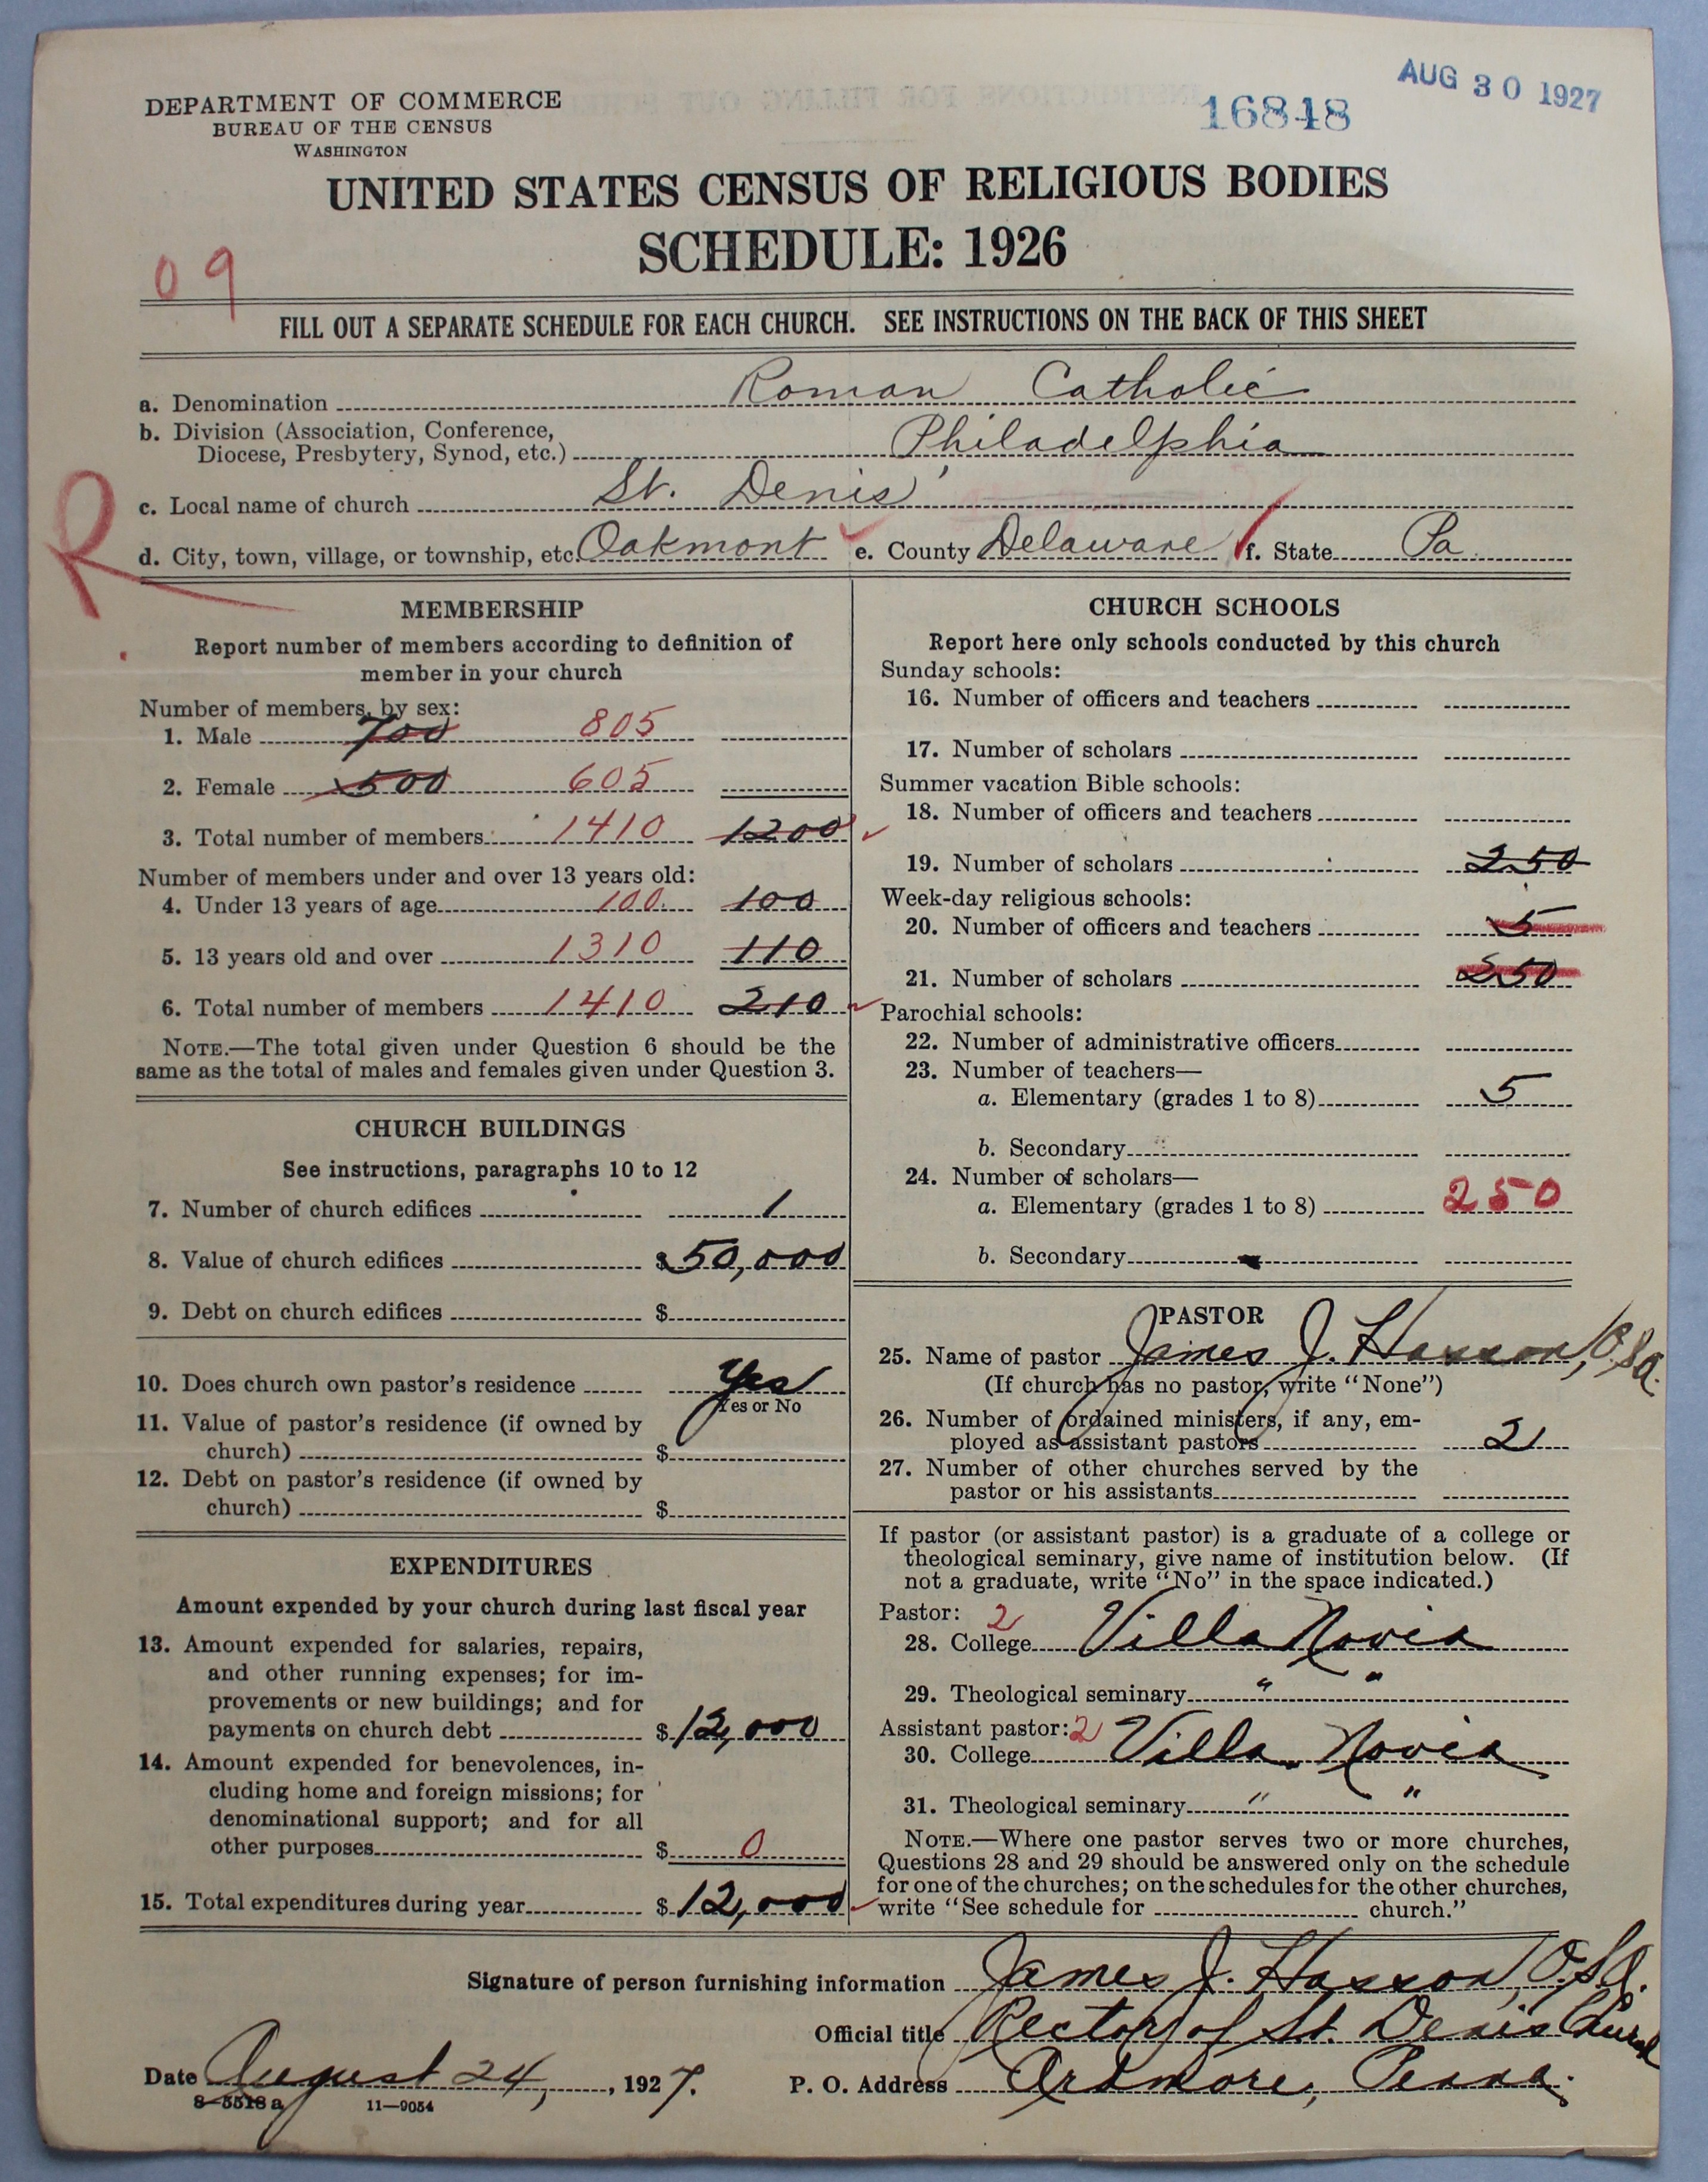 AUG 30 1927
16848
DEPARTMENT OF COMMERCE
BUREAU OF THE CENSUS
WASHINGTON
UNITED STATES CENSUS OF RELIGIOUS BODIES
SCHEDULE: 1926
09
FILL OUT A SEPARATE SCHEDULE FOR EACH CHURCH. SEE INSTRUCTIONS ON THE BACK OF THIS SHEET
a. Denomination Roman Catholic
b. Division (Association, Conference,
Diocese, Presbytery, Synod, etc.) Philadelphia
c. Local name of church St. Denis'
R
d. City, town, village, or township, etc. Oakmont e. County Delaware f. State Pa
MEMBERSHIP
Report number of members according to definition of
member in your church
Number of members, by sex:
1. Male 700 805
2. Female 500 605
3. Total number of members 1410 1200
Number of members under and over 13 years old:
4. Under 13 years of age 100 100
5. 13 years old and over 1310 110
6. Total number of members 1410 210
NOTE.—The total given under Question 6 should be the
same as the total of males and females given under Question 3.
CHURCH BUILDINGS
See instructions, paragraphs 10 to 12
7. Number of church edifices 1
8. Value of church edifices $50,000
9. Debt on church edifices $
10. Does church own pastor's residence Yes
Yes or No
11. Value of pastor's residence (if owned by
church) $
12. Debt on pastor's residence (if owned by
church) $
EXPENDITURES
Amount expended by your church during last fiscal year
13. Amount expended for salaries, repairs,
and other running expenses; for im-
provements or new buildings; and for
payments on church debt $12,000
14. Amount expended for benevolences, in-
cluding home and foreign missions; for
denominational support; and for all
other purposes $ 0
15. Total expenditures during year $12,000
CHURCH SCHOOLS
Report here only schools conducted by this church
Sunday schools:
16. Number of officers and teachers
17. Number of scholars
Summer vacation Bible schools:
18. Number of officers and teachers
19. Number of scholars 250
Week-day religious schools:
20. Number of officers and teachers 5
21. Number of scholars 250
Parochial schools:
22. Number of administrative officers
23. Number of teachers—
a. Elementary (grades 1 to 8) 5
b. Secondary
24. Number of scholars—
a. Elementary (grades 1 to 8) 250
b. Secondary
PASTOR
25. Name of pastor James J. Hasson, O.S.A.
(If church has no pastor, write "None")
26. Number of ordained ministers, if any, em-
ployed as assistant pastors 2
27. Number of other churches served by the
pastor or his assistants
If pastor (or assistant pastor) is a graduate of a college or
theological seminary, give name of institution below. (If
not a graduate, write "No" in the space indicated.)
Pastor: 2
28. College Villa Novia
29. Theological seminary " "
Assistant pastor: 2
30. College Villa Novia
31. Theological seminary " "
NOTE.—Where one pastor serves two or more churches,
Questions 28 and 29 should be answered only on the schedule
for one of the churches; on the schedules for the other churches,
write "See schedule for church."
Signature of person furnishing information James J. Hasson, O.S.A.
Official title Rector of St. Denis Church
Date August 24, 1927. P. O. Address Ardmore, Penna.
8-5518a 11—9054